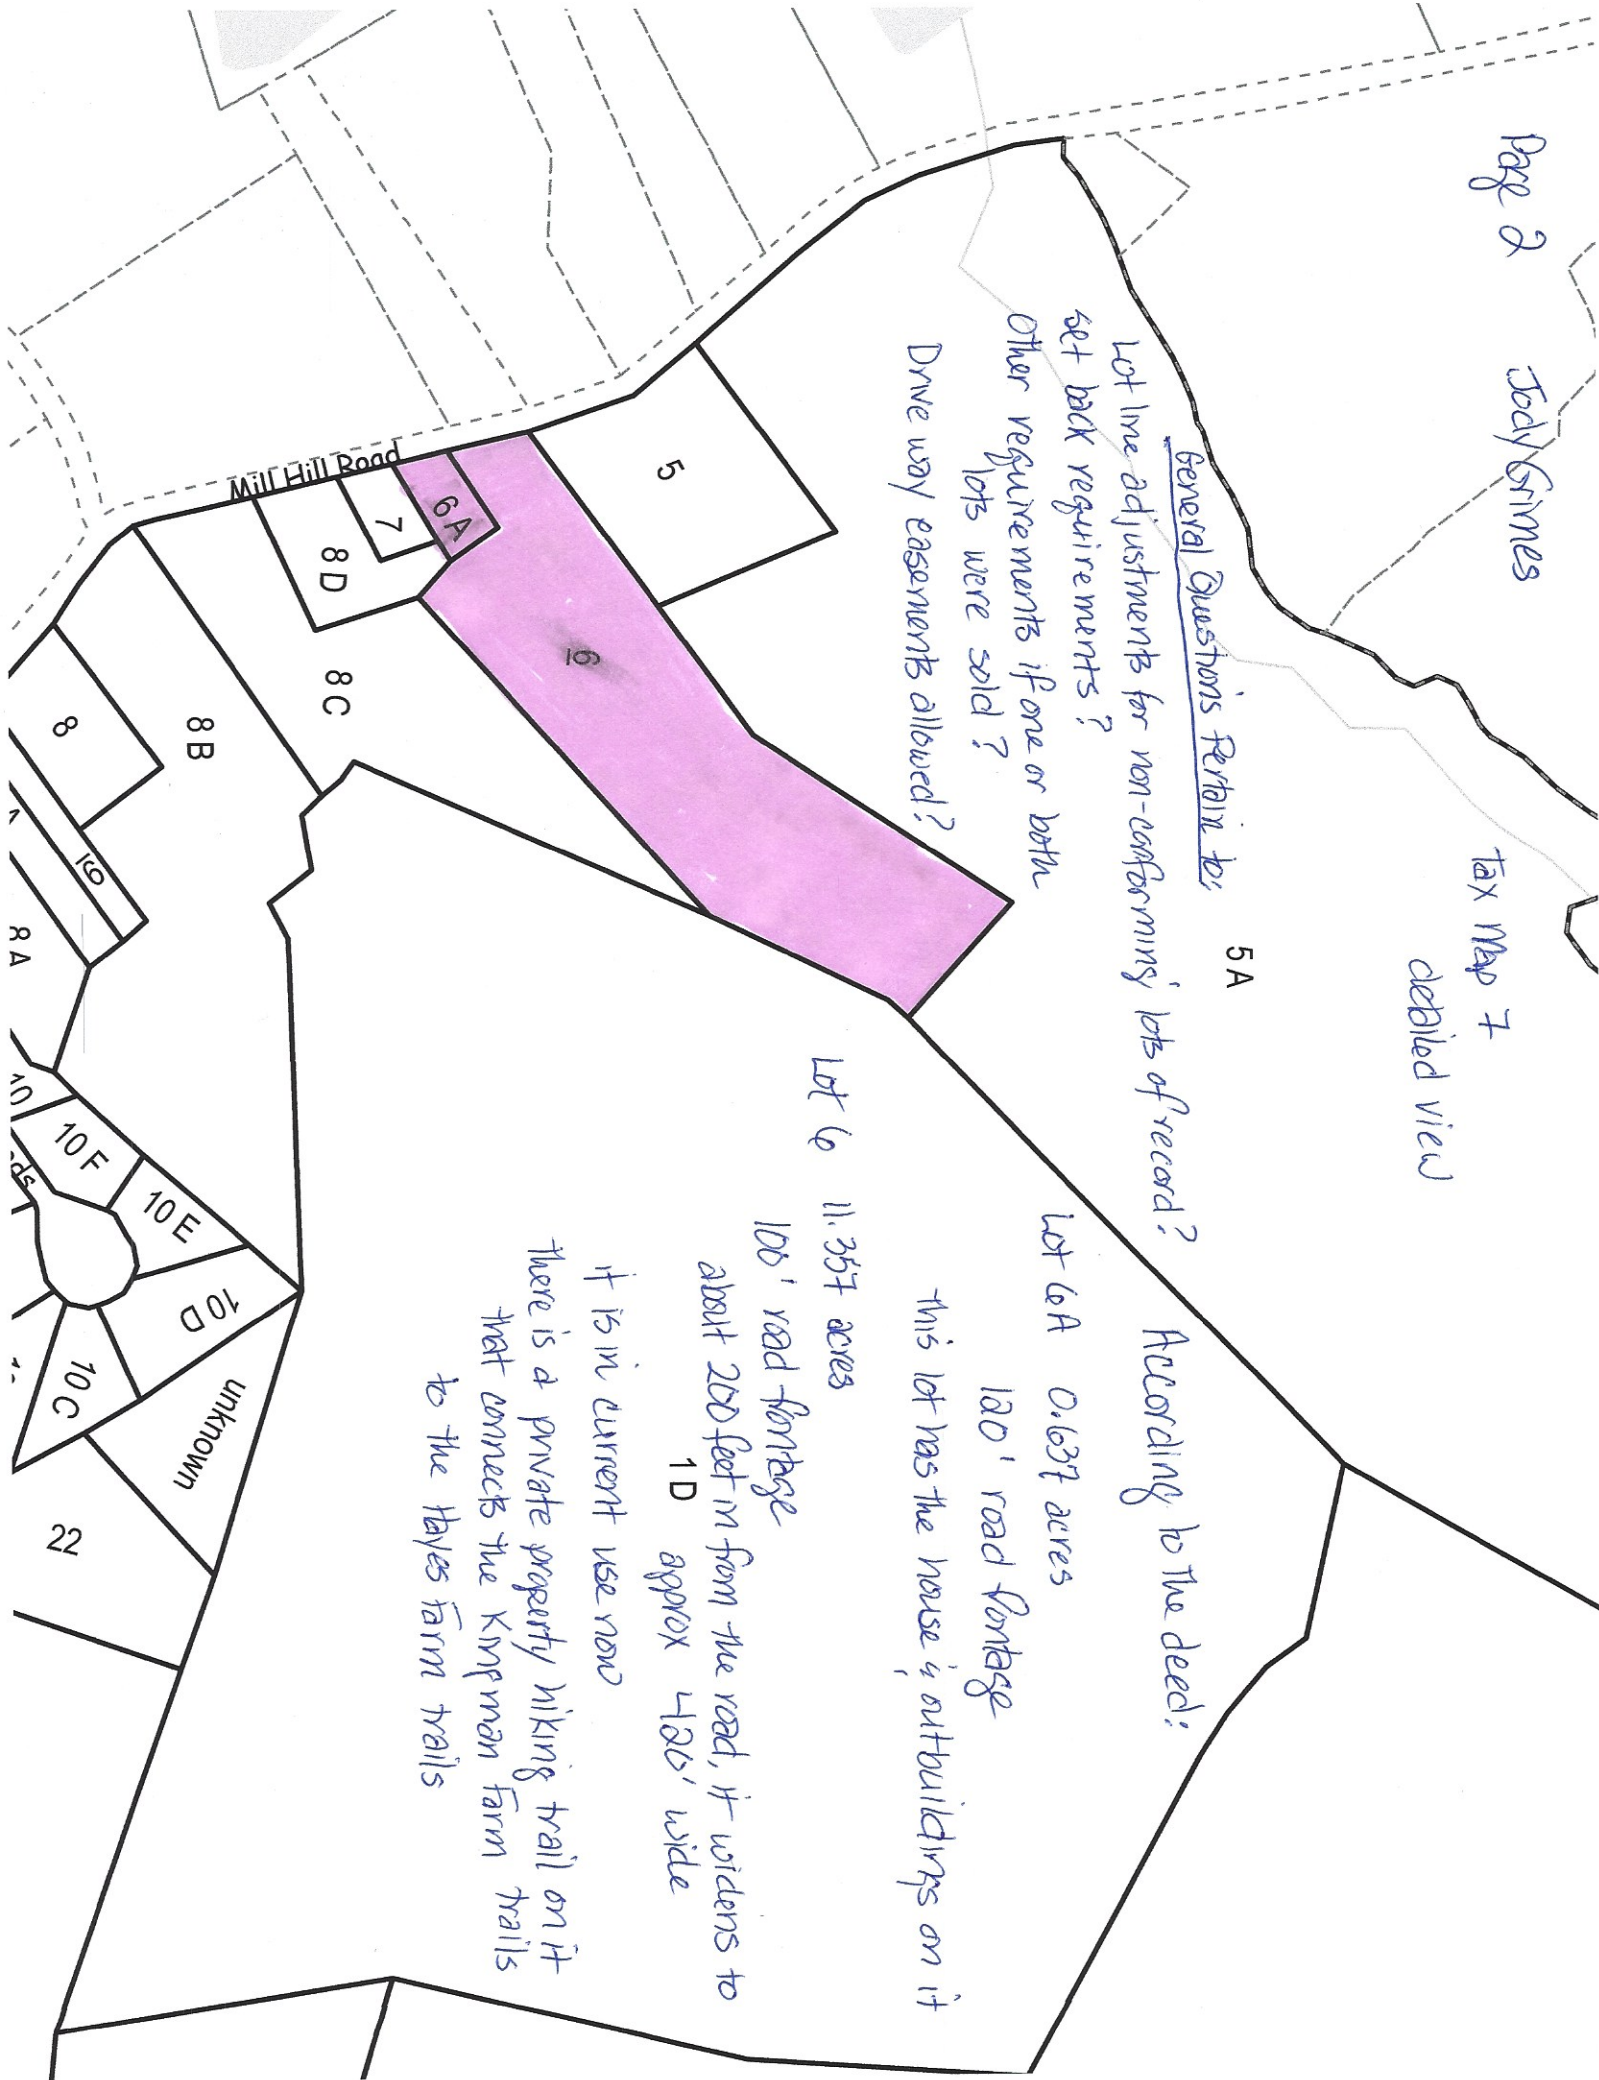 Page 2
Jody Grimes
Tax Map 7
detailed view
General Questions Pertain to:
Lot line adjustments for non-conforming lots of record?
set back requirements?
Other requirements if one or both
lots were sold?
Drive way easements allowed?
According to the deed:
Lot 6A 0.637 acres
120' road frontage
this lot has the house & outbuildings on it
Lot 6 11.357 acres
100' road frontage
about 200 feet in from the road, it widens to
approx 420' wide
it is in current use now
There is a private property hiking trail on it
that connects the Kingman Farm trails
to the Hayes Farm trails
5 A
5
Mill Hill Road
6 A
7
8 D
6
8 C
8 B
8
16
8 A
10 F
10 E
10 D
10 C
unknown
22
1 D